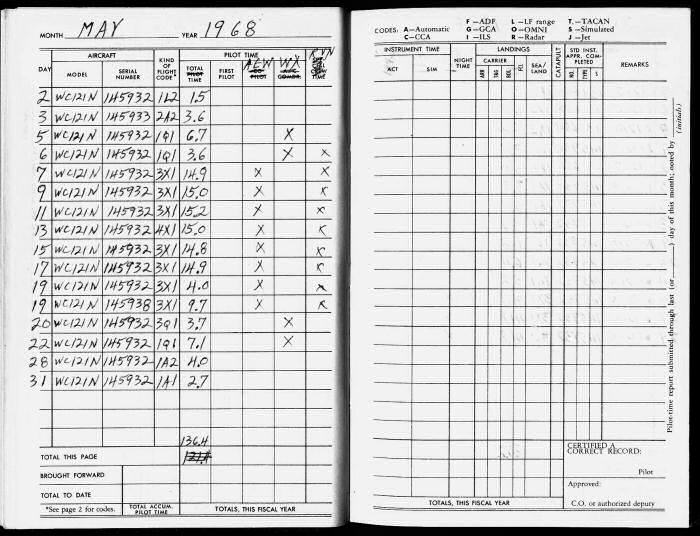 MONTH MAY YEAR 1968
AIRCRAFT PILOT TIME
DAY MODEL SERIAL NUMBER KIND OF FLIGHT CODE* TOTAL PILOT TIME FIRST PILOT ACLW CO-PILOT WX A/C COMDR. RVN TIME
2 WC121N 145932 1L2 1.5
3 WC121N 145933 2A2 3.6
5 WC121N 145932 1Q1 6.7 X
6 WC121N 145932 1Q1 3.6 X X
7 WC121N 145932 3X1 14.9 X X
9 WC121N 145932 3X1 15.0 X X
11 WC121N 145932 3X1 15.2 X X
13 WC121N 145932 4X1 15.0 X X
15 WC121N 145932 3X1 14.8 X X
17 WC121N 145932 3X1 14.9 X X
19 WC121N 145932 3X1 4.0 X X
19 WC121N 145938 3X1 9.7 X X
20 WC121N 145932 3Q1 3.7 X
22 WC121N 145932 1Q1 7.1 X
28 WC121N 145932 1A2 4.0
31 WC121N 145932 1A1 2.7
136.4
TOTAL THIS PAGE 121.4
BROUGHT FORWARD
TOTAL TO DATE
*See page 2 for codes. TOTAL ACCUM. PILOT TIME TOTALS, THIS FISCAL YEAR
CODES: A—Automatic F—ADF L—LF range T.—TACAN
C—CCA G—GCA O—OMNI S—Simulated
I—ILS R—Radar J—Jet
INSTRUMENT TIME NIGHT TIME LANDINGS CATAPULT STD INST. APPR. COMPLETED REMARKS
ACT SIM CARRIER SEA/LAND NO. TYPE S
ARR T&G BOL FCL
Pilot-time report submitted through last (or ____) day of this month; noted by ____ (initials)
CERTIFIED A CORRECT RECORD:
Pilot
Approved:
TOTALS, THIS FISCAL YEAR C.O. or authorized deputy